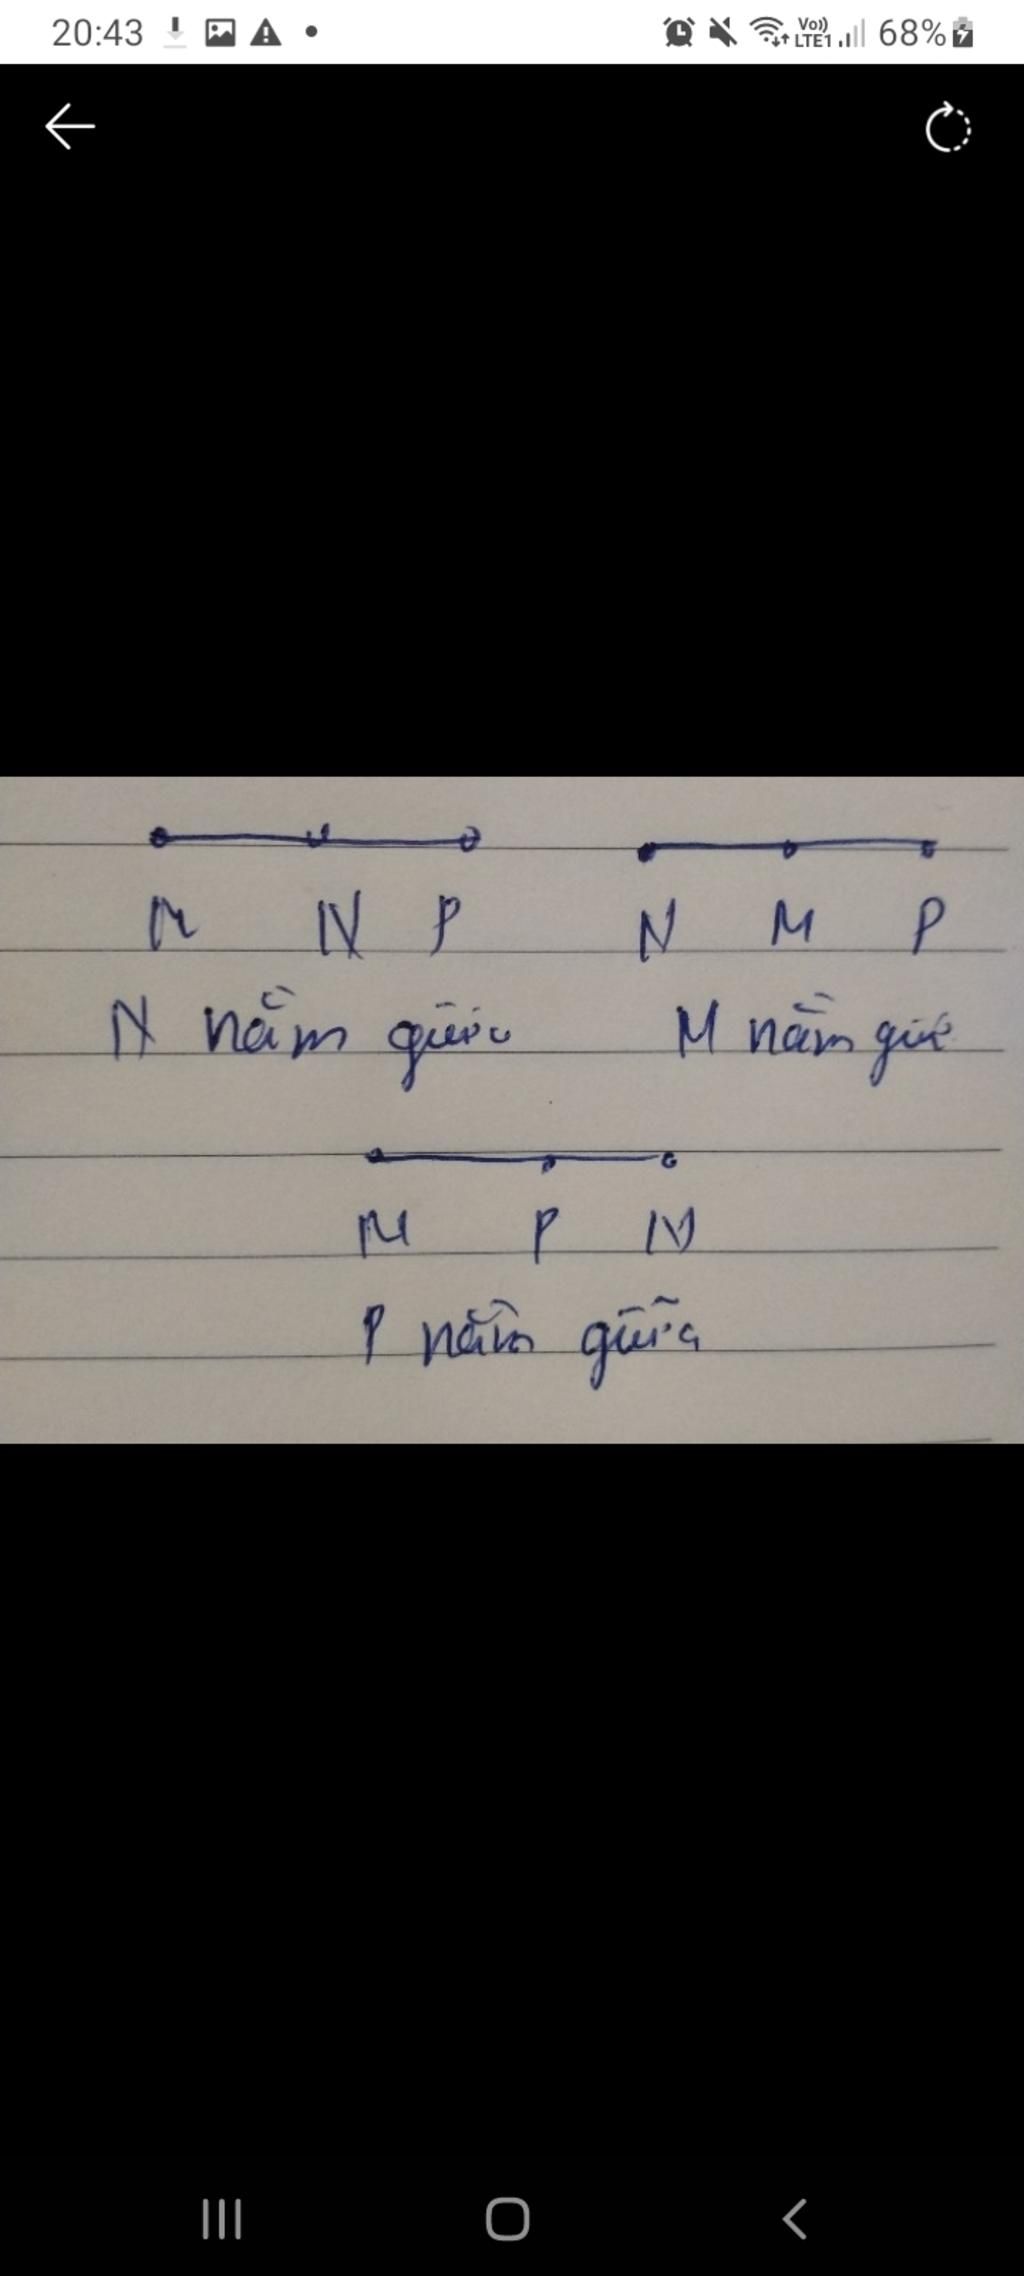 20:43 Vo)) LTE1 68%
M N P N M P
N nằm giữa M nằm giữa
M P N
P nằm giữa